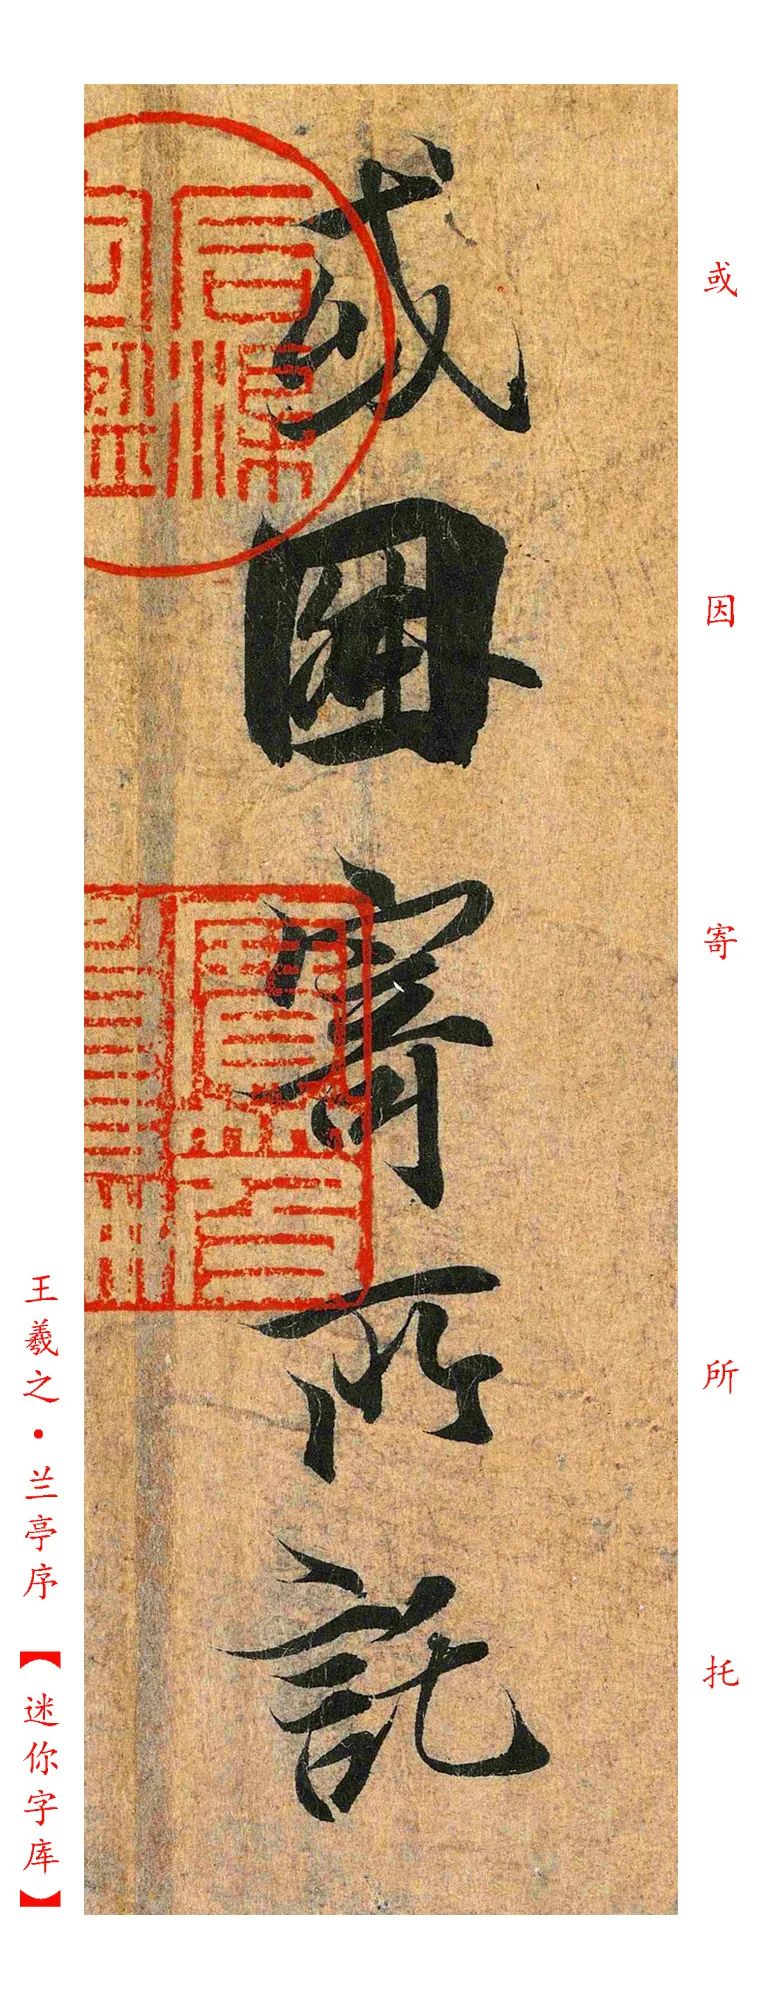 或因寄所託
或因寄所托
王羲之·兰亭序【迷你字库】